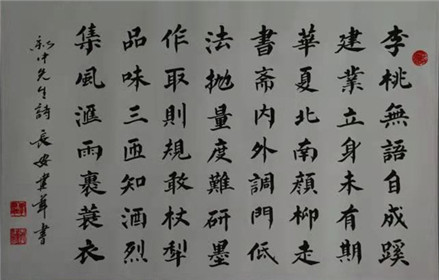 李桃無語自成蹊
建業立身未有期
華夏北南顏柳走
書斋内外調門低
法抛量度難研墨
作取則規敢杖犁
品味三匝知酒烈
集風滙雨裹蓑衣
先生詩 長安 書